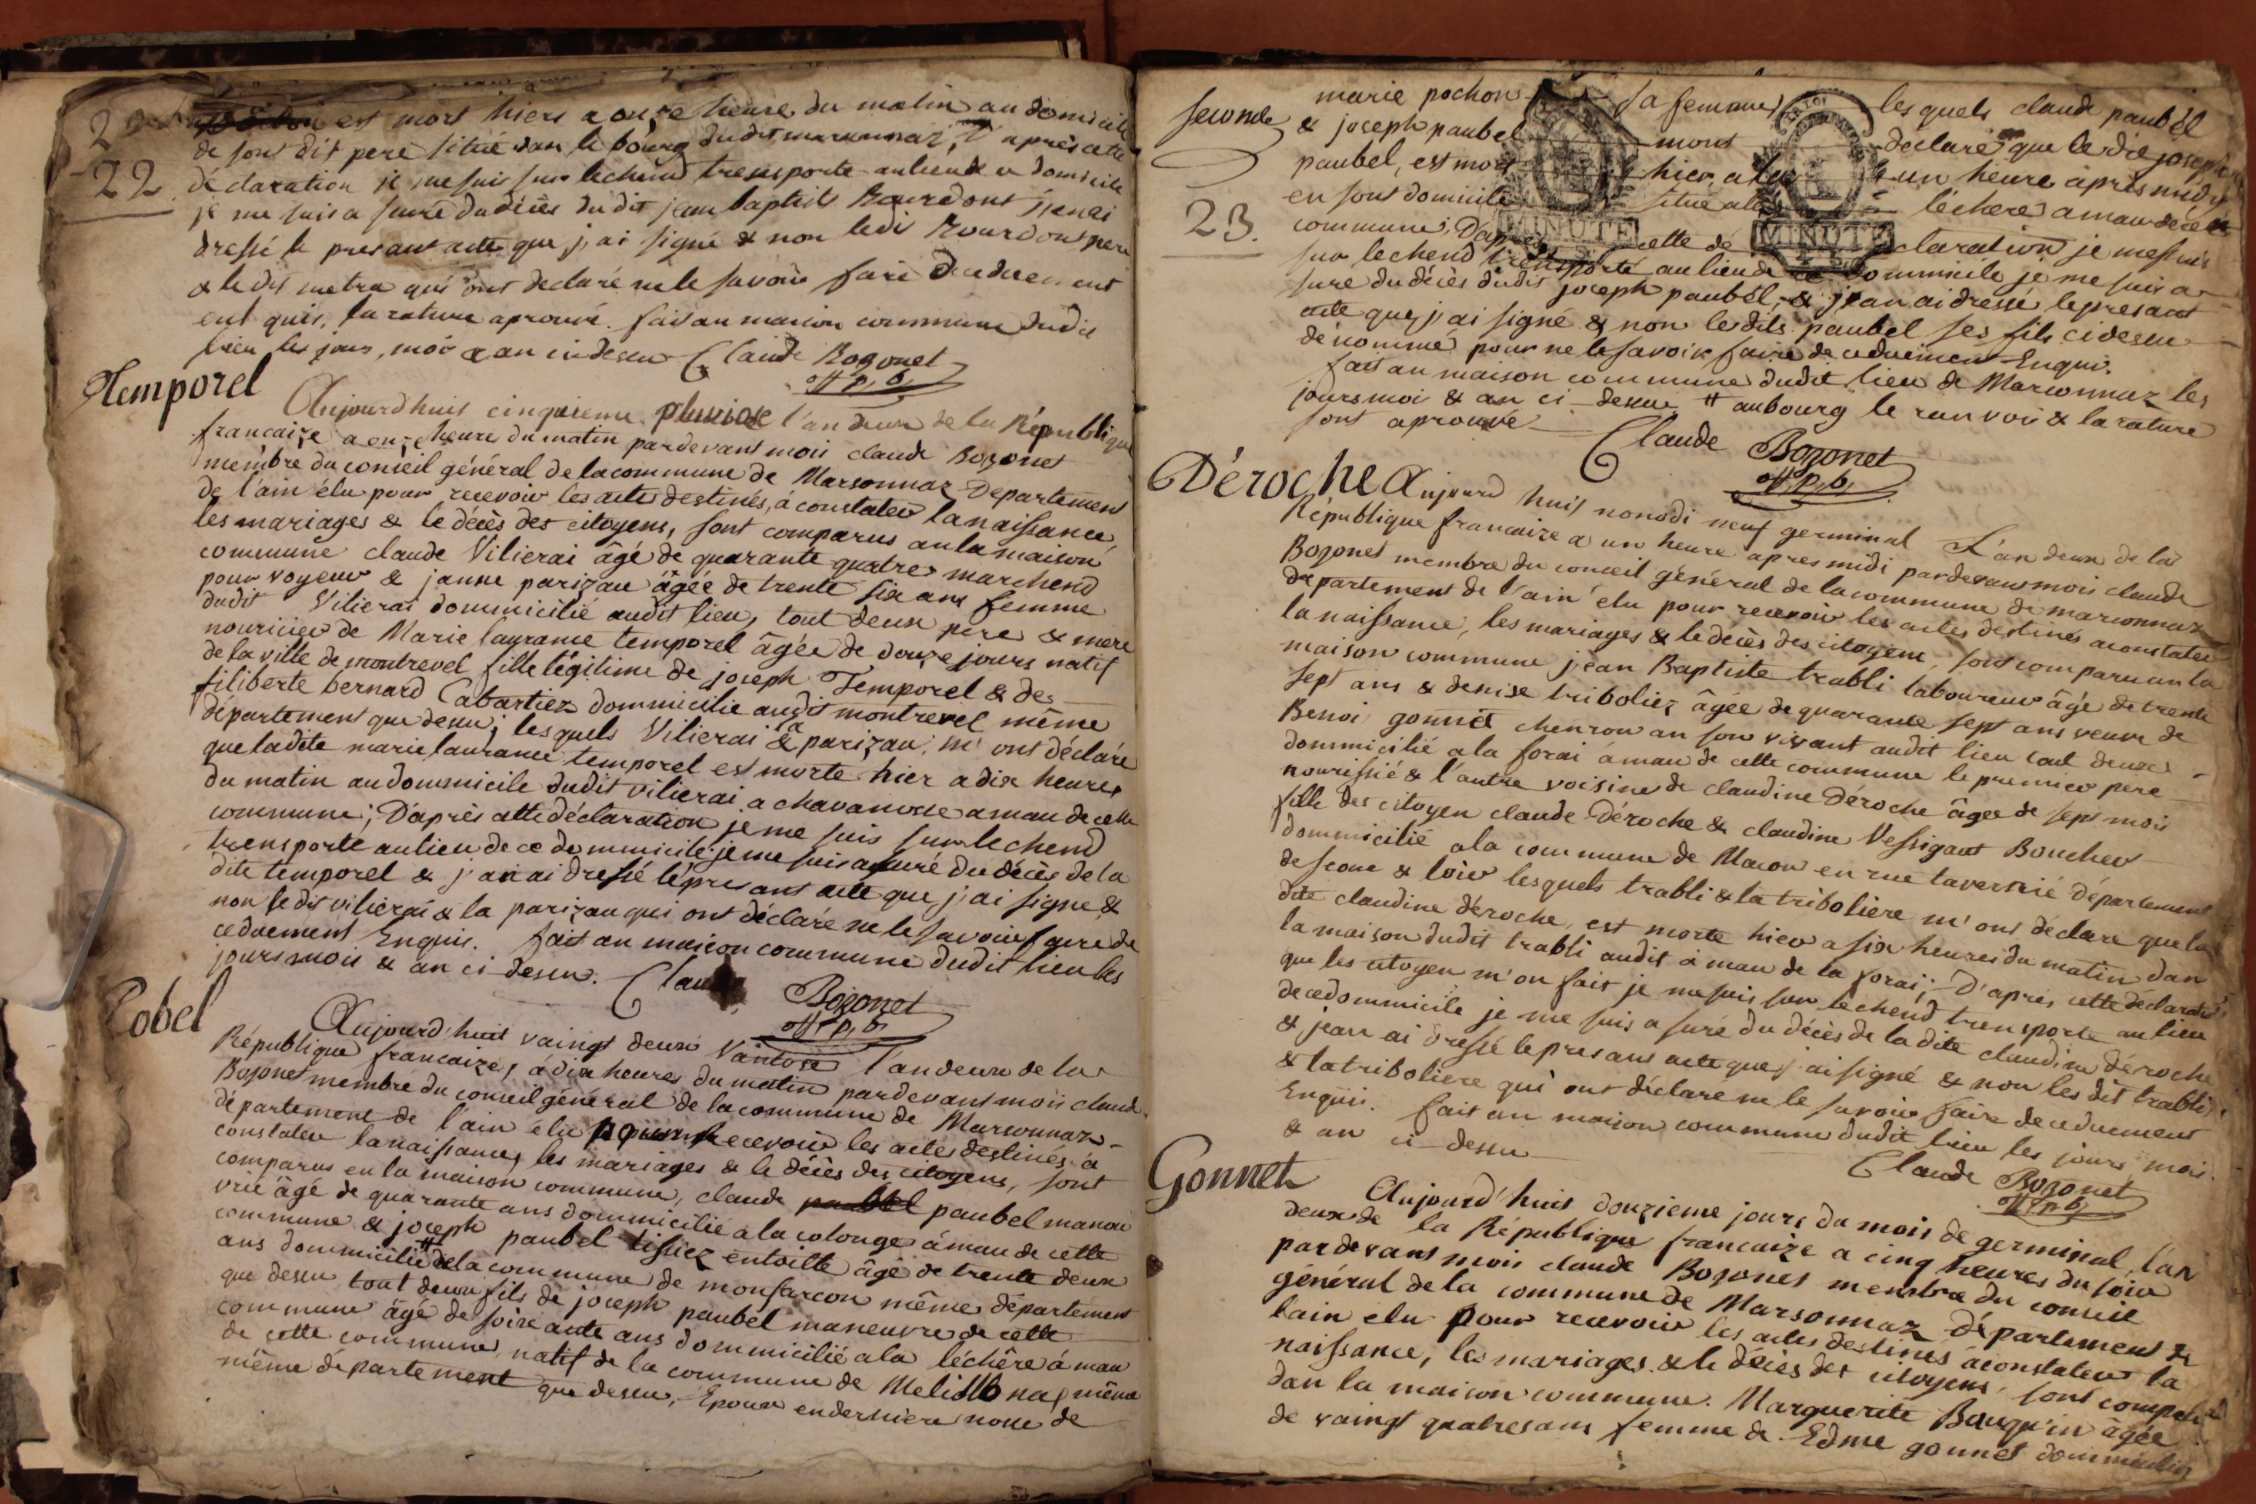 22
22
est mort hiers a onze heure du matin au domicile
de son dit pere situé dan le bourg dudit marsonnaz, D'après cette
déclaration je me suis sur lechend trensporte aulieude ce domicile
je me suis a suire du décès du dit jean baptiste Bourdont jjenai
dressé le presant acte que j'ai signé & non ledi Bourdont pere
& ledit metra qui ont declaré ne le savoir faire deceduement
enquis, la rature aprouvé. fait au maison commune dudit
lieu les jour, moi & an ci desu Claude Bozonet
off. p. b.
Temporel
Aujourd'huis cinquieme pluviose l'an deux de la République
francaize a onze heure du matin pardevant mois claude Bozonet
membre du conseil général de la commune de Marsonnaz Departement
de l'ain élu pour recevoir les actes destinés, à constater la naissance
les mariages & le décès des citoyens, sont comparus au la maison
commune claude Vilierai âgé de quarante quatres marchend
pour voyeur & janne parizau âgée de trente six ans femme
dudit Vilierai dommicilié audit lieu, tout deux pere & mere
nouricier de Marie laurance temporel âgée de douze jours natif
de la ville de montrevel fille légitime de joseph Temporel & de
filiberte bernard Cabartiez dommicilie audit montrevel même
département que desu; lesquels Vilierai & la parizau, m'ont déclaré
que ladite marie laurance temporel est morte hier a dix heures
du matin au dommicile dudit vilierai a chavanosse amau de cette
commune; D'après cette déclaration je me suis sur lechend
trensporte au lieu de ce dommicile je me suis a suré du décès de la
dite temporel & j'an ai dressé le presant acte que j'ai signé &
non le dit vilierai & la parizau qui ont déclare ne le savoir faire de
ceduement Enquis. fait au maison commune dudit lieu les
jours mois & an ci desu. Claude Bozonet
off. p. b.
Pobel
Aujourd'huit vaingt deux Vantose l'an deux de la
République francaize, à dix heures du matin pardevant mois claude
Bozonet membre du conseil général de la commune de Marsonnaz
département de l'ain élu pour recevoir les actes destinés à
constater la naissance, les mariages & le décès des citoyens, sont
comparus en la maison commune, claude paubel manou
vrié âgé de quarante ans dommicilié a la colonge âmau de cette
commune & joseph paubel tissiez entoille âgé de trente deux
ans dommicilié # de la commune de monfarcon même département
que desu tout deux fils de joseph paubel maneuvre de cette
commune âgé de soixante ans dommicilié a la léchêre à mau
de cette commune, natif de la commune de Melidona, même
même département que desu, Epoux en derniere nosse de
seconde
marie pochon sa femme, lesquels claude paubel
& joseph paubel mont déclaré que ledit joseph
23.
paubel, est mort hier, a un heure après midy
en sont domicile situe a la léchere amau de cette
commune; D'après cette déclaration je me suis
sur lechend trensporté au lieu de ce dommicile je me suis a
suré du décès dudit joseph paubel, & j'an ai dressé le presant
acte que j'ai signé & non lesdits paubel ses fils ci desu
dénommé pour ne le savoir faire de ceduement Enqui.
fait au maison commune dudit lieu de Marsonnaz les
jours moi & an ci desu # au bourg le ranvoi & la rature
sont aprouvé Claude Bozonet
off. p. b.
MINUTE
MINUTE
Déroche
Aujourd huis nonodi neuf germinal L'an deux de la
République francaize a un heure apres midi pardevant mois claude
Bozonet membre du conseil général de la commune de marsonnaz
département de l'ain élu pour recevoir les actes destinés a constater
la naissance, les mariages & le décès des citoyens, sont comparu an la
maison commune jean Baptiste trabli laboureur âgé de trente
sept ans & denise triboliez âgée de quarante sept ans veuve de
Benoi gonnet chenron an son vivant audit lieu tout deux
dommicilié a la forai âmau de cette commune le premier pere
nourissié & l'autre voisine de claudine Déroche âgee de sept mois
fille des citoyen claude Déroche & claudine Vessigaut Boucher
dommicilié a la commune de Macon en rue taversnié Département
de sone & loir lesquels trabli & la triboliere m'ons déclare que la
dite claudine déroche, est morte hier a six heures du matin dan
la maison dudit trabli audit âmau de la forai; D'après cette déclaration
que les citoyen m'on fait je me suis sur lechend trensporte au lieu
de ce dommicile je me suis a suré du décès de la dite claudine déroche
& jean ai dressé le presans acte que j'ai signé & non les dit trabli
& la triboliere qui ont déclare ne le savoir faire de ceduement
Enquis. fait au maison commune dudit lieu les jours mois
& an ci desu
Claude Bozonet
off. p. b.
Gonnet
Aujourd'huis douzieme jours du mois de germinal, l'an
deux de la République francaize a cinq heures du soir
pardevant mois claude Bozonet membre du conseil
général de la commune de Marsonnaz Département de
lain elu pour recevoir les actes destinés àconstater la
naissance, les mariages & le décès des citoyens, sont comparu
dan la maison commune. Marguerite Bauquin âgée
de vaingt quatres ans femme de Edme gonnet dommicilié